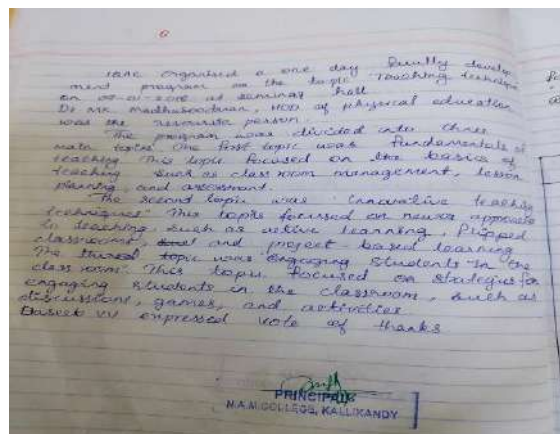 IQAC organised a one day faculty develop
ment program on the topic Teaching technique
on at seminar hall
Dr MK Madhusoodhan, HOD of physical education
was the resourse person.
The program was divided into three
main topics. One first topic was Fundamentals of
teaching This topic focused on the basics of
teaching such as class room management, lesson
planning, and assessment.
The second topic was "innovative teaching
techniques" This topic focused on newer approaches
to teaching, such as active learning, flipped
classrooms, and project-based learning
The topic was "engaging students in the
class room". This topic focused on strategies for
engaging students in the classroom, such as
discussions, games, and activities.
VV expressed vote of thanks
PRINCIPAL
N.A.M COLLEGE, KALLIKANDY